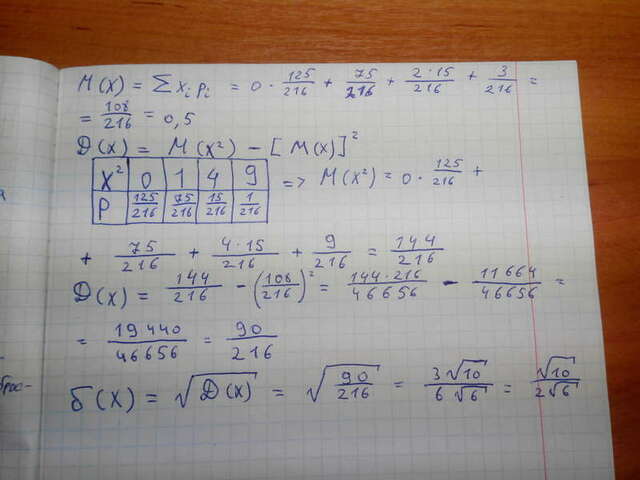 M(X) = ∑ xᵢ pᵢ = 0 · 125/216 + 75/216 + 2·15/216 + 3/216 =
= 108/216 = 0,5
D(X) = M(X²) - [M(X)]²
X² 0 1 4 9 => M(X²) = 0 · 125/216 +
P 125/216 75/216 15/216 1/216
+ 75/216 + 4·15/216 + 9/216 = 144/216
D(X) = 144/216 - (108/216)² = 144·216/46656 - 11664/46656 =
= 19440/46656 = 90/216
б(X) = √D(X) = √90/216 = 3√10/6√6 = √10/2√6
брос-